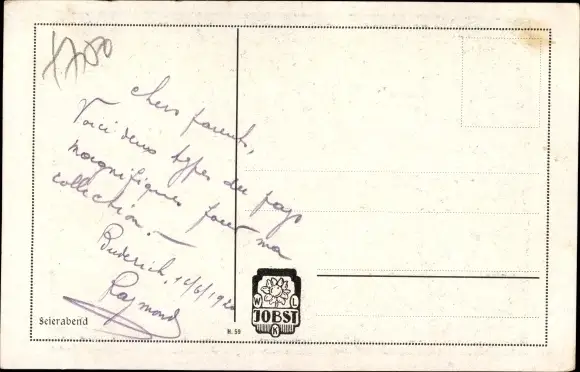 Chers parents,
Voici deux types du pays
magnifiques pour ma
collection. —
Buderich, 16/6/192
Raymond
Feierabend
N. 59
W L
JOBST
K